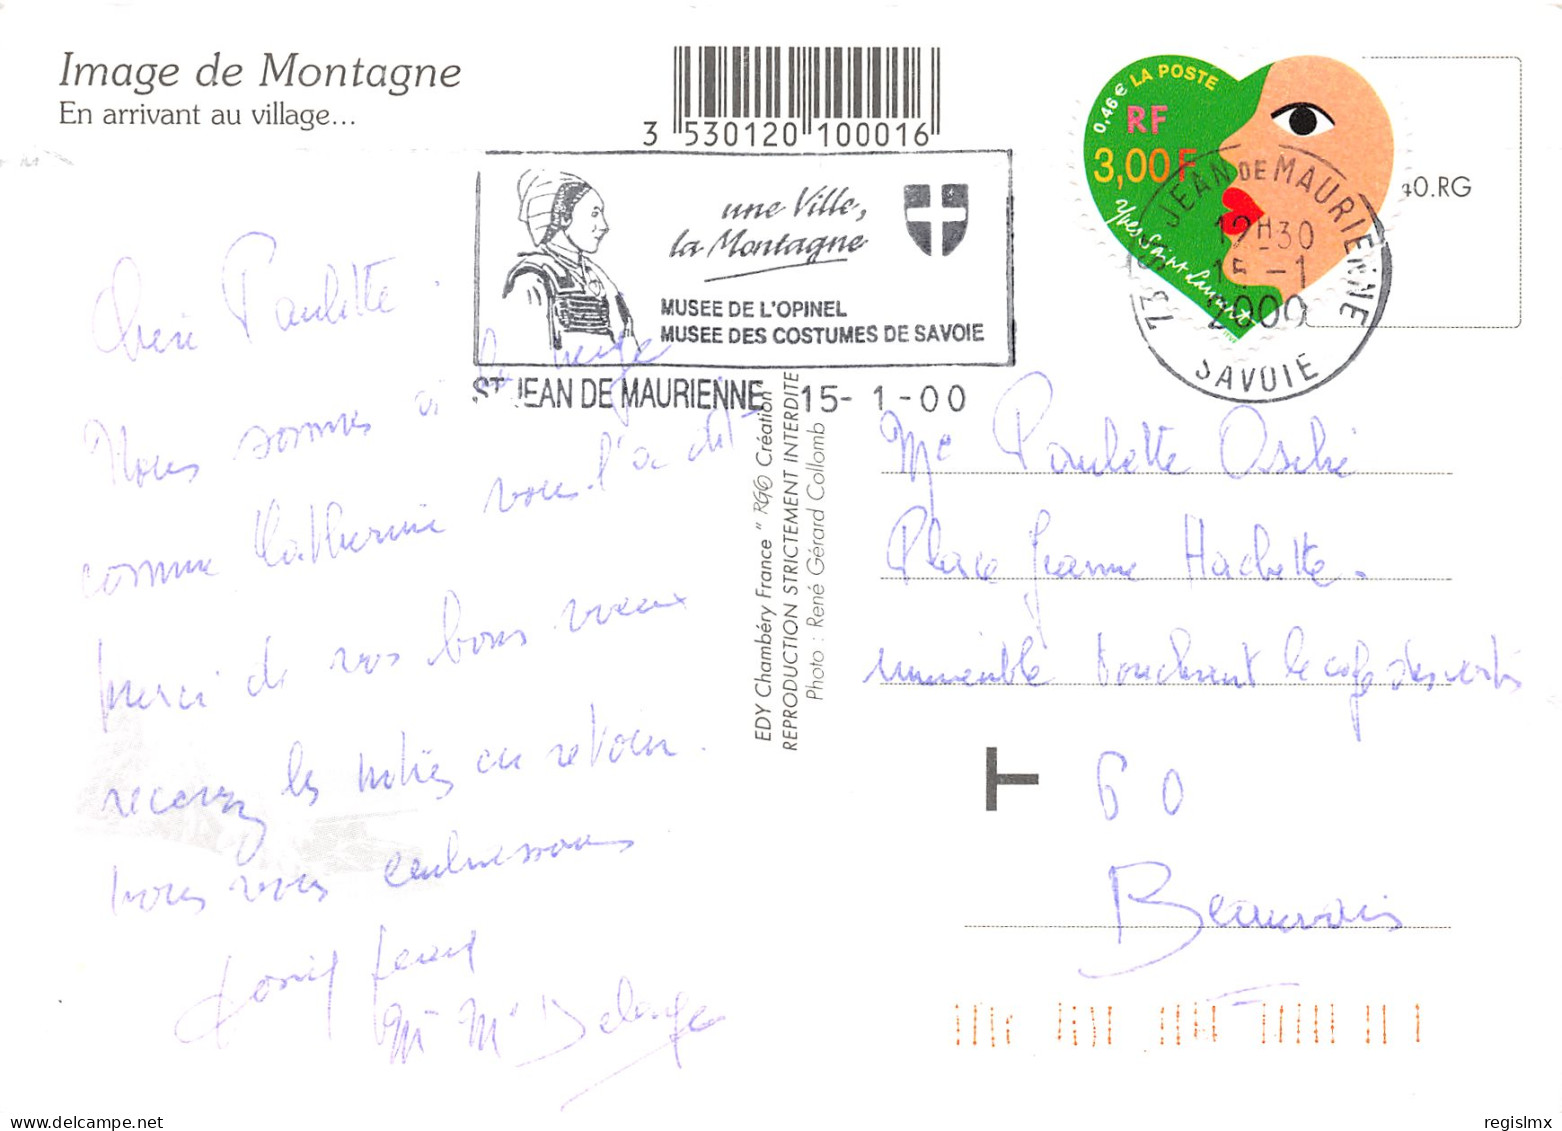 Image de Montagne
En arrivant au village...
3 530120 100016
0,46 € LA POSTE
RF
3,00 F
Yves Saint Laurent
40.RG
une Ville,
la Montagne
MUSEE DE L'OPINEL
MUSEE DES COSTUMES DE SAVOIE
ST JEAN DE MAURIENNE 15-1-00
73 ST JEAN DE MAURIENNE
12H30
15-1
2000
SAVOIE
Chère Paulette.
Nous sommes à la neige
comme Catherine vous l'a dit
merci de vos bons vœux
recevez les notres en retour.
nous vous embrassons
Mr Me Delage
EDY Chambéry France " RGC Création"
REPRODUCTION STRICTEMENT INTERDITE
Photo : René Gérard Collomb
Me Paulette
Place Jeanne Hachette.
immeuble touchant le café des
T
60
Beauvais
regislmx